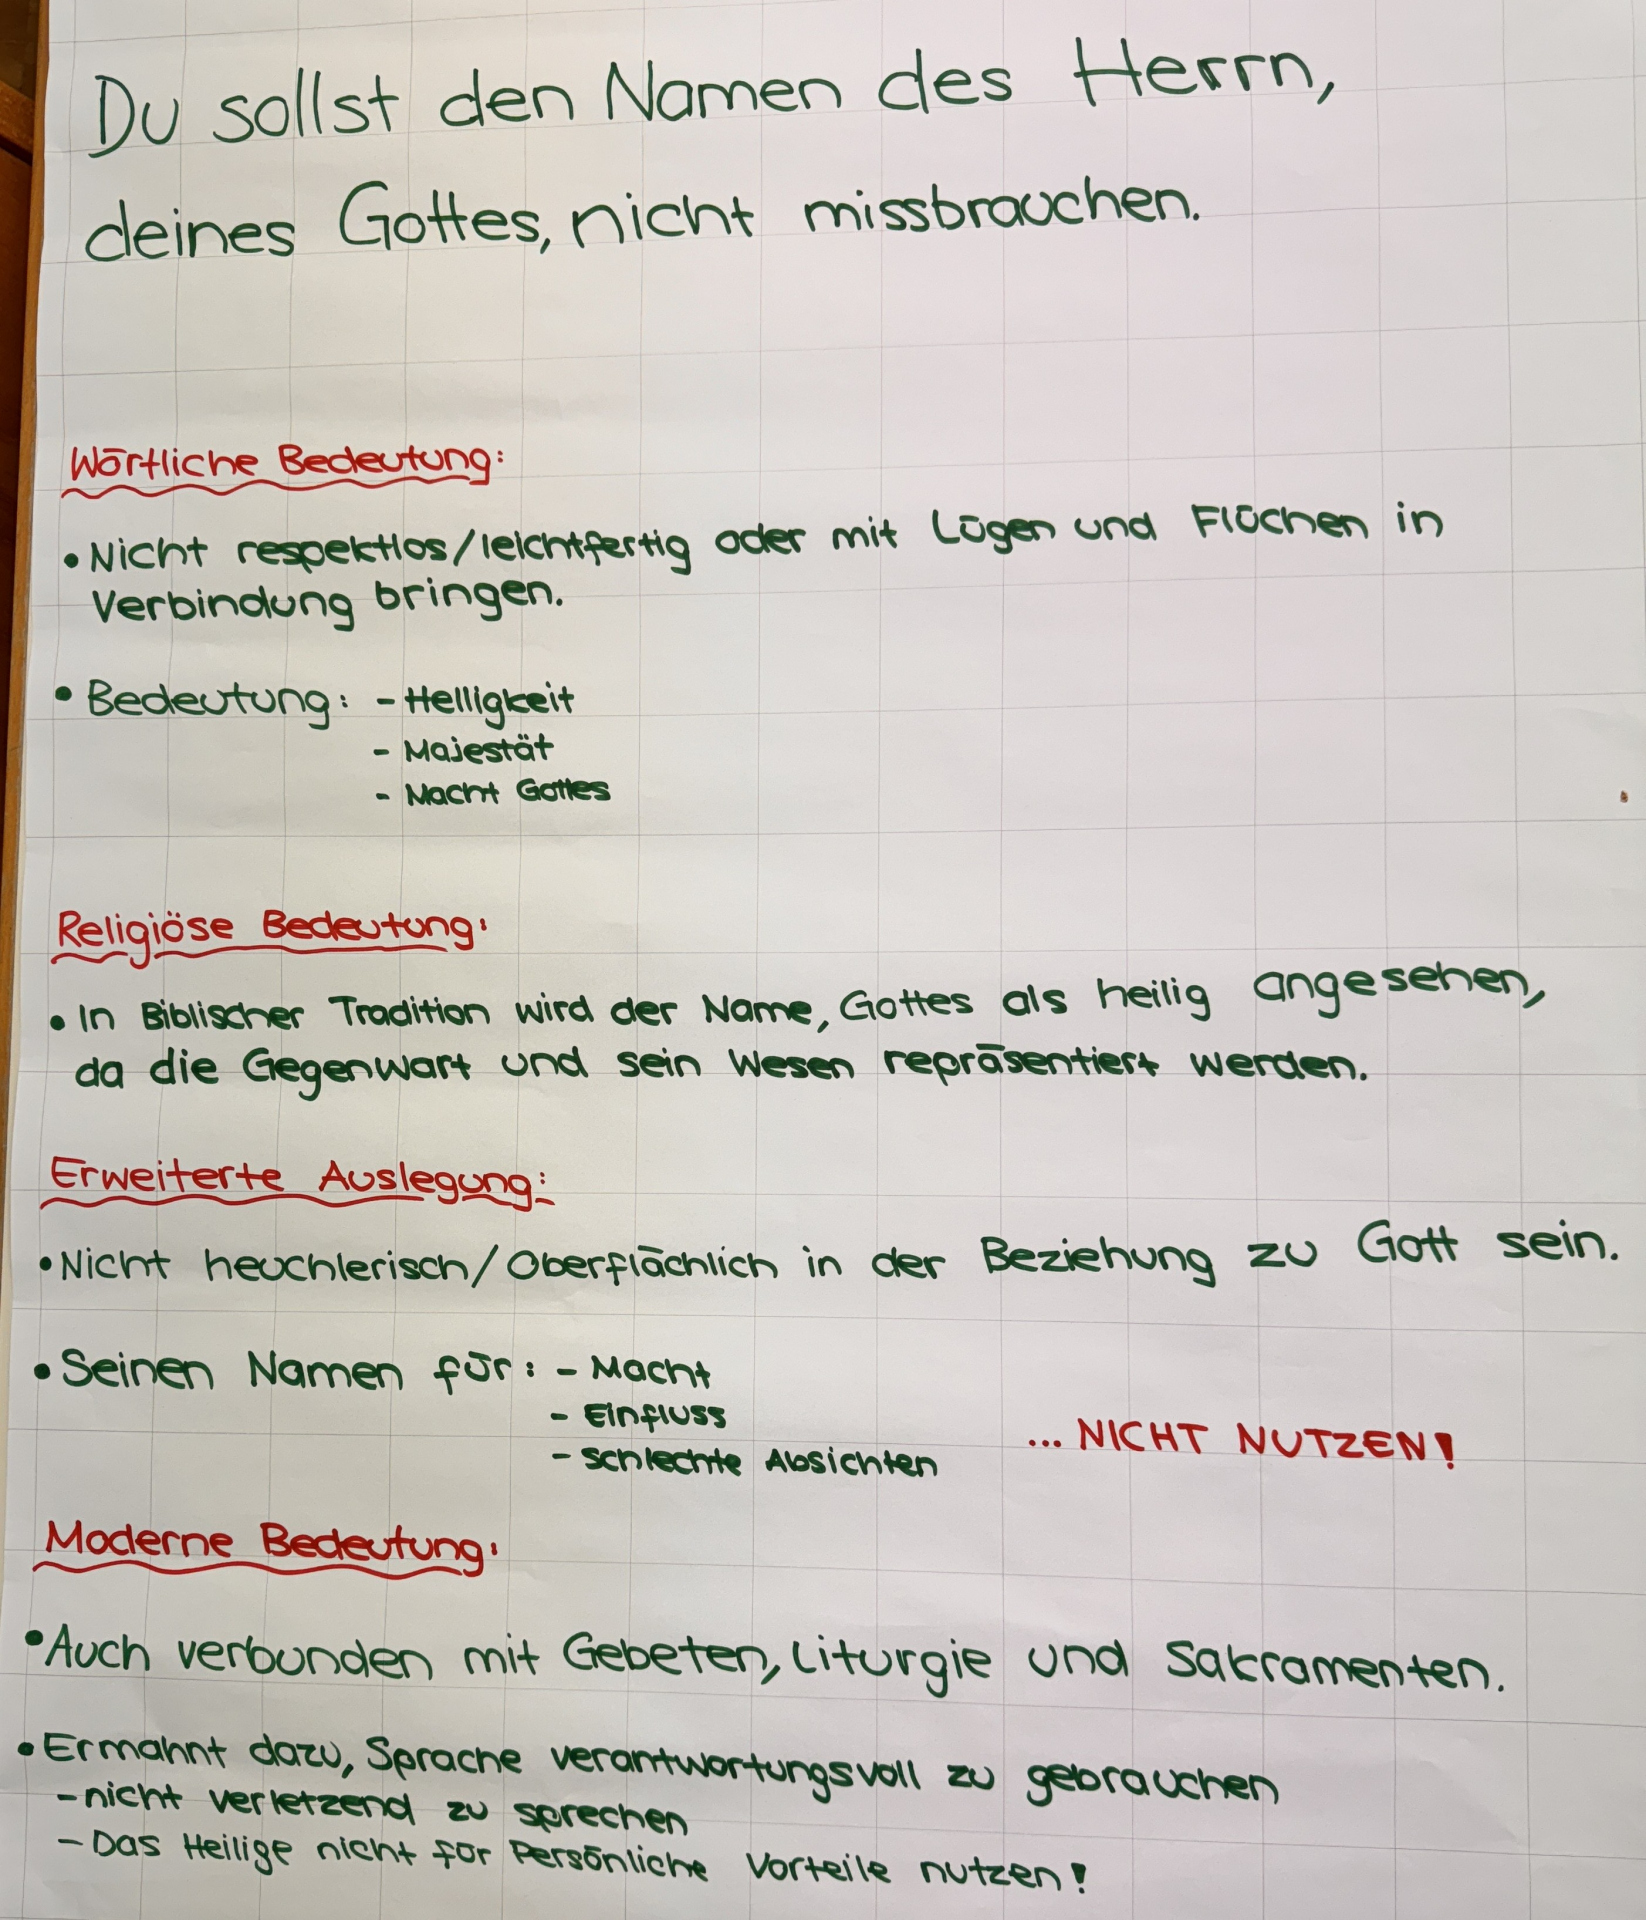 Du sollst den Namen des Herrn,
deines Gottes, nicht missbrauchen.
Wörtliche Bedeutung:
• Nicht respektlos/leichtfertig oder mit Lügen und Flüchen in
Verbindung bringen.
• Bedeutung: - Helligkeit
- Majestät
- Macht Gottes
Religiöse Bedeutung:
• In Biblischer Tradition wird der Name, Gottes als heilig angesehen,
da die Gegenwart und sein Wesen repräsentiert werden.
Erweiterte Auslegung:
• Nicht heuchlerisch/Oberflächlich in der Beziehung zu Gott sein.
• Seinen Namen für: - Macht
- Einfluss
- Schlechte Absichten ... NICHT NUTZEN!
Moderne Bedeutung:
• Auch verbunden mit Gebeten, Liturgie und Sakramenten.
• Ermahnt dazu, Sprache verantwortungsvoll zu gebrauchen
- nicht verletzend zu sprechen
- Das Heilige nicht für Persönliche Vorteile nutzen!